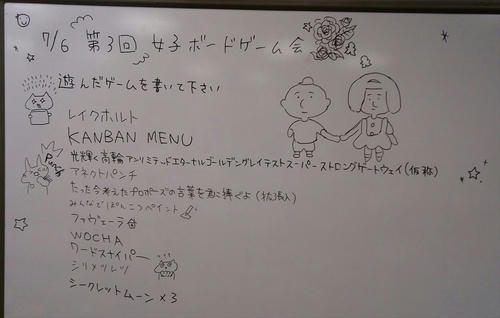 7/6 第3回 女子ボードゲーム会
遊んだゲームを書いて下さい
レイクホルト
KANBAN MENU
光輝く高輪アンリミテッドエターナルゴールデングレイテストスーパーストロングゲートウェイ(仮称)
Punch
アネクトパンチ
たった今考えたプロポーズの言葉を君に捧ぐよ(拡張入)
みんなでぽんこつペイント
ファヴェーラ
WOCHA
ワードスナイパー
シリメツレツ
シークレットムーン×3